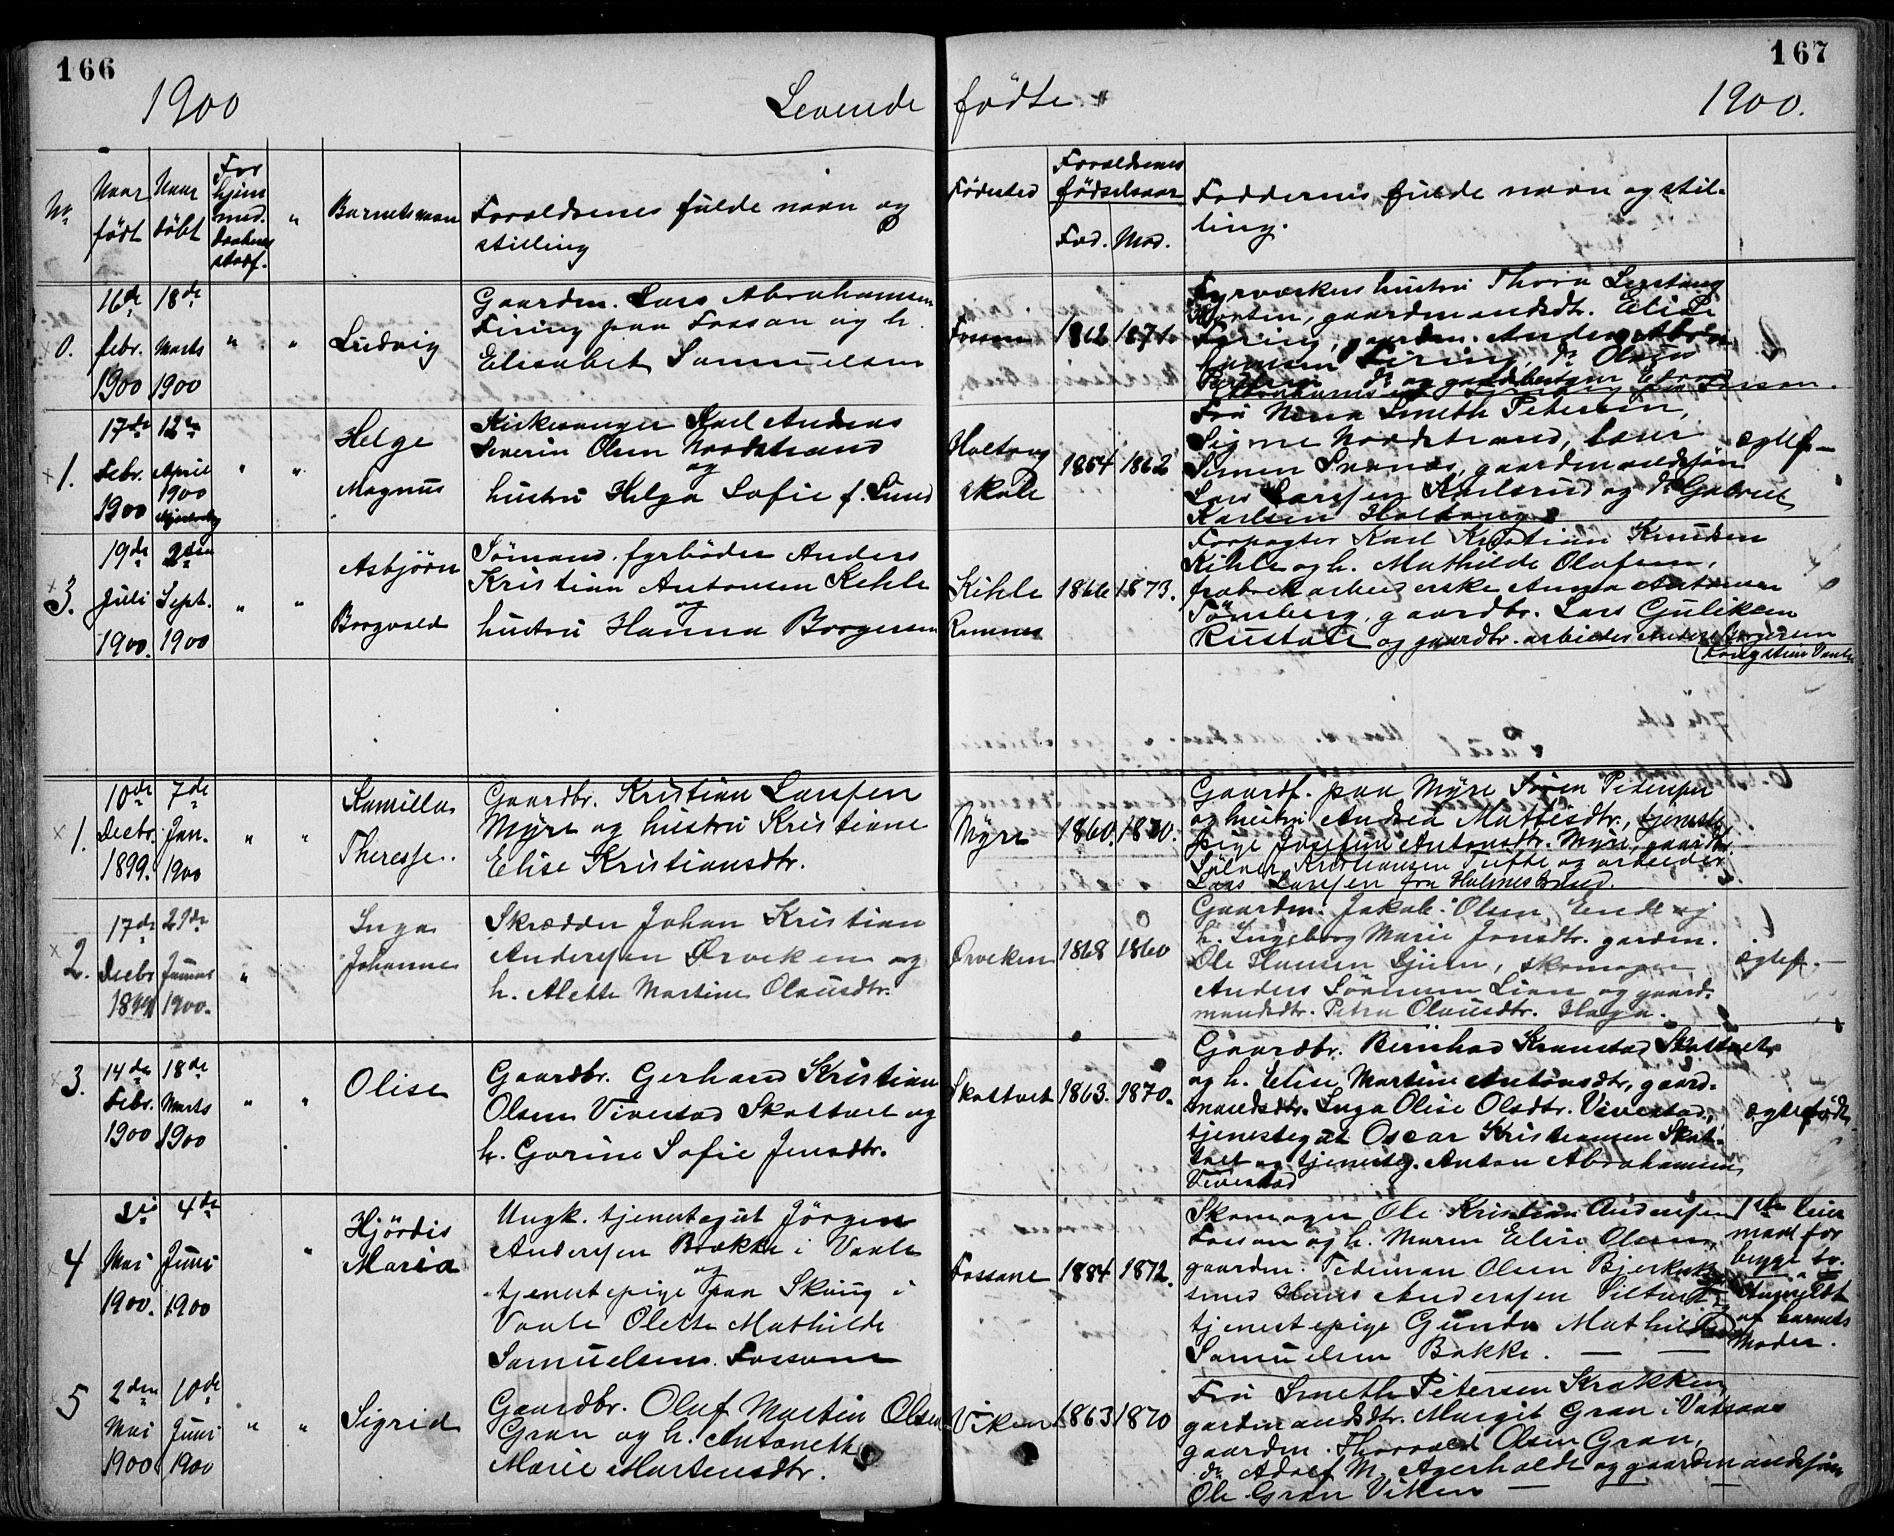 166
167
1900
Levende fødte
1900.
No
Naar født
Naar døbt
For hjemmed.
"
Barnets navn
Forældrenes fulde navn og stilling
Fødested
Forældrenes fødselsaar
Fad.
Mod.
Faddernes fulde navn og stilling.
0.
16de febr. 1900
18de Marts 1900
"
"
Ludvig
Gaardm. Lars Abrahamsen
Firing paa Fossan og h.
Elisabet Samuelsen
Fossan
1862
1871.
hustru Thora
Horten, gaardmandsdt. Elise
Firing, gaardm. Anders Abra-
hamsen Firing, do Olaga
1.
17de Febr. 1900
12te April 1900
"
"
Helge
Magnus
Kirkesanger Karl Andreas
Severin Olsen Nordstrand
og
hustru Helga Sofie f. Lund
Holtung
skole
1854
1862
Fru Smeth Petersen,
Signe Nordstrand,
Simen gaardmandsøn
Lars Larssen Karlsrud og do Gabriel
Karlsen Holtung
ægtef.—
3.
19de Juli 1900.
2den Sept. 1900
"
"
Asbjörn
Borgvald
Sömand, fyrbøder Anders
Kristian Antonsen Kihle
og
hustru Hanna Borgersen
Kihle
Ramnes
1866
1873.
Forpagter Karl Kristian Knudsen
Kihle og h. Mathilde Olafsen,
fabrikarbeiderske Anna Antonsen
Tønsberg, gaardbr. Lars Guliksen
Rustale og gaardbr. arbeider Anders Borgersen
1.
10de Decbr. 1899.
7de Jan. 1900
"
"
Kamilla
Theresse.
Gaardbr. Kristian Larssen
Myre og hustru Kristiane
Elise Kristiansdtr.
Myre
1860.
1870.
Gaardf. paa Myre Sören Petersen
og hustru Andrea Mattisdtr., tjeneste-
pige Josefine Antonsdtr. Myre, gaardbr.
Kristiansen Tufte og arbeider
Lars Larssen fra Holmestrand.
2.
17de Decbr 1899
21de Januar 1900.
"
Inga
Johanne
Skrædder Johan Kristian
Anderssen Ørveken og
h. Alette Martine Olausdtr.
Ørveken
1868
1860
Gaardm. Jakob Olsen Ende og
h. Ingeborg Marie Jonsdtr. gardm.
Ole Hansen skomager
Anders Sörensen Lian og gaard-
mandsdtr. Petra Olausdtr. Haga.
ægtef.—
3.
14de Febr. 1900
18de Marts 1900
"
"
Olise
Gaardbr. Gerhard Kristian
Olsen Vivestad Skattvet og
h. Gorine Sofie Jensdtr.
Skattvet
1863.
1870.
Gaardbr. Bernhard Kranstad Skattvet,
og h. Elise Martine Antonsdtr, gaard-
mandsdtr. Inga Olise Olsdtr. Vivestad,
tjenestegut Oscar Kristiansen Skat-
tvet og tjenesteg. Anton Abrahamsen
Vivestad
ægtefødt.
4
Mai 1900.
4de Juni 1900
"
Hjördis
Maria
Ungk. tjenestegut Jörgen
Anderssen Brække i Vaale
og
tjenestepige paa Skoug i
Vaale Olette Mathilde
Samuelsen Fossane
Fossane
1884
1872.
Skomager Ole Kristian Anderssen
Fossan og h. Maren Elise Olsen,
gaardm. Pederman Olsen
smed Hans Anderssen
tjenestepige Gunda Mathilde
Samuelsen Bakke. — —
1ste leier
maal for
begge to.
Anmeldt
af barnets
Moder.
5
2den Mai 1900
10de Juni 1900
"
"
Sigrid
Gaardbr. Oluf Martin Olsen
Gran og h. Antonette
Marie Martensdtr.
Viken
1863
1870
Fru Smeth Petersen Krakken,
gardmandsdtr. Margit Gran i Vassaas
gaardm. Thorvald Olsen Gran,
do Adolf M. Agerholdt og gaardmandssøn
Ole Gran Viken — — —